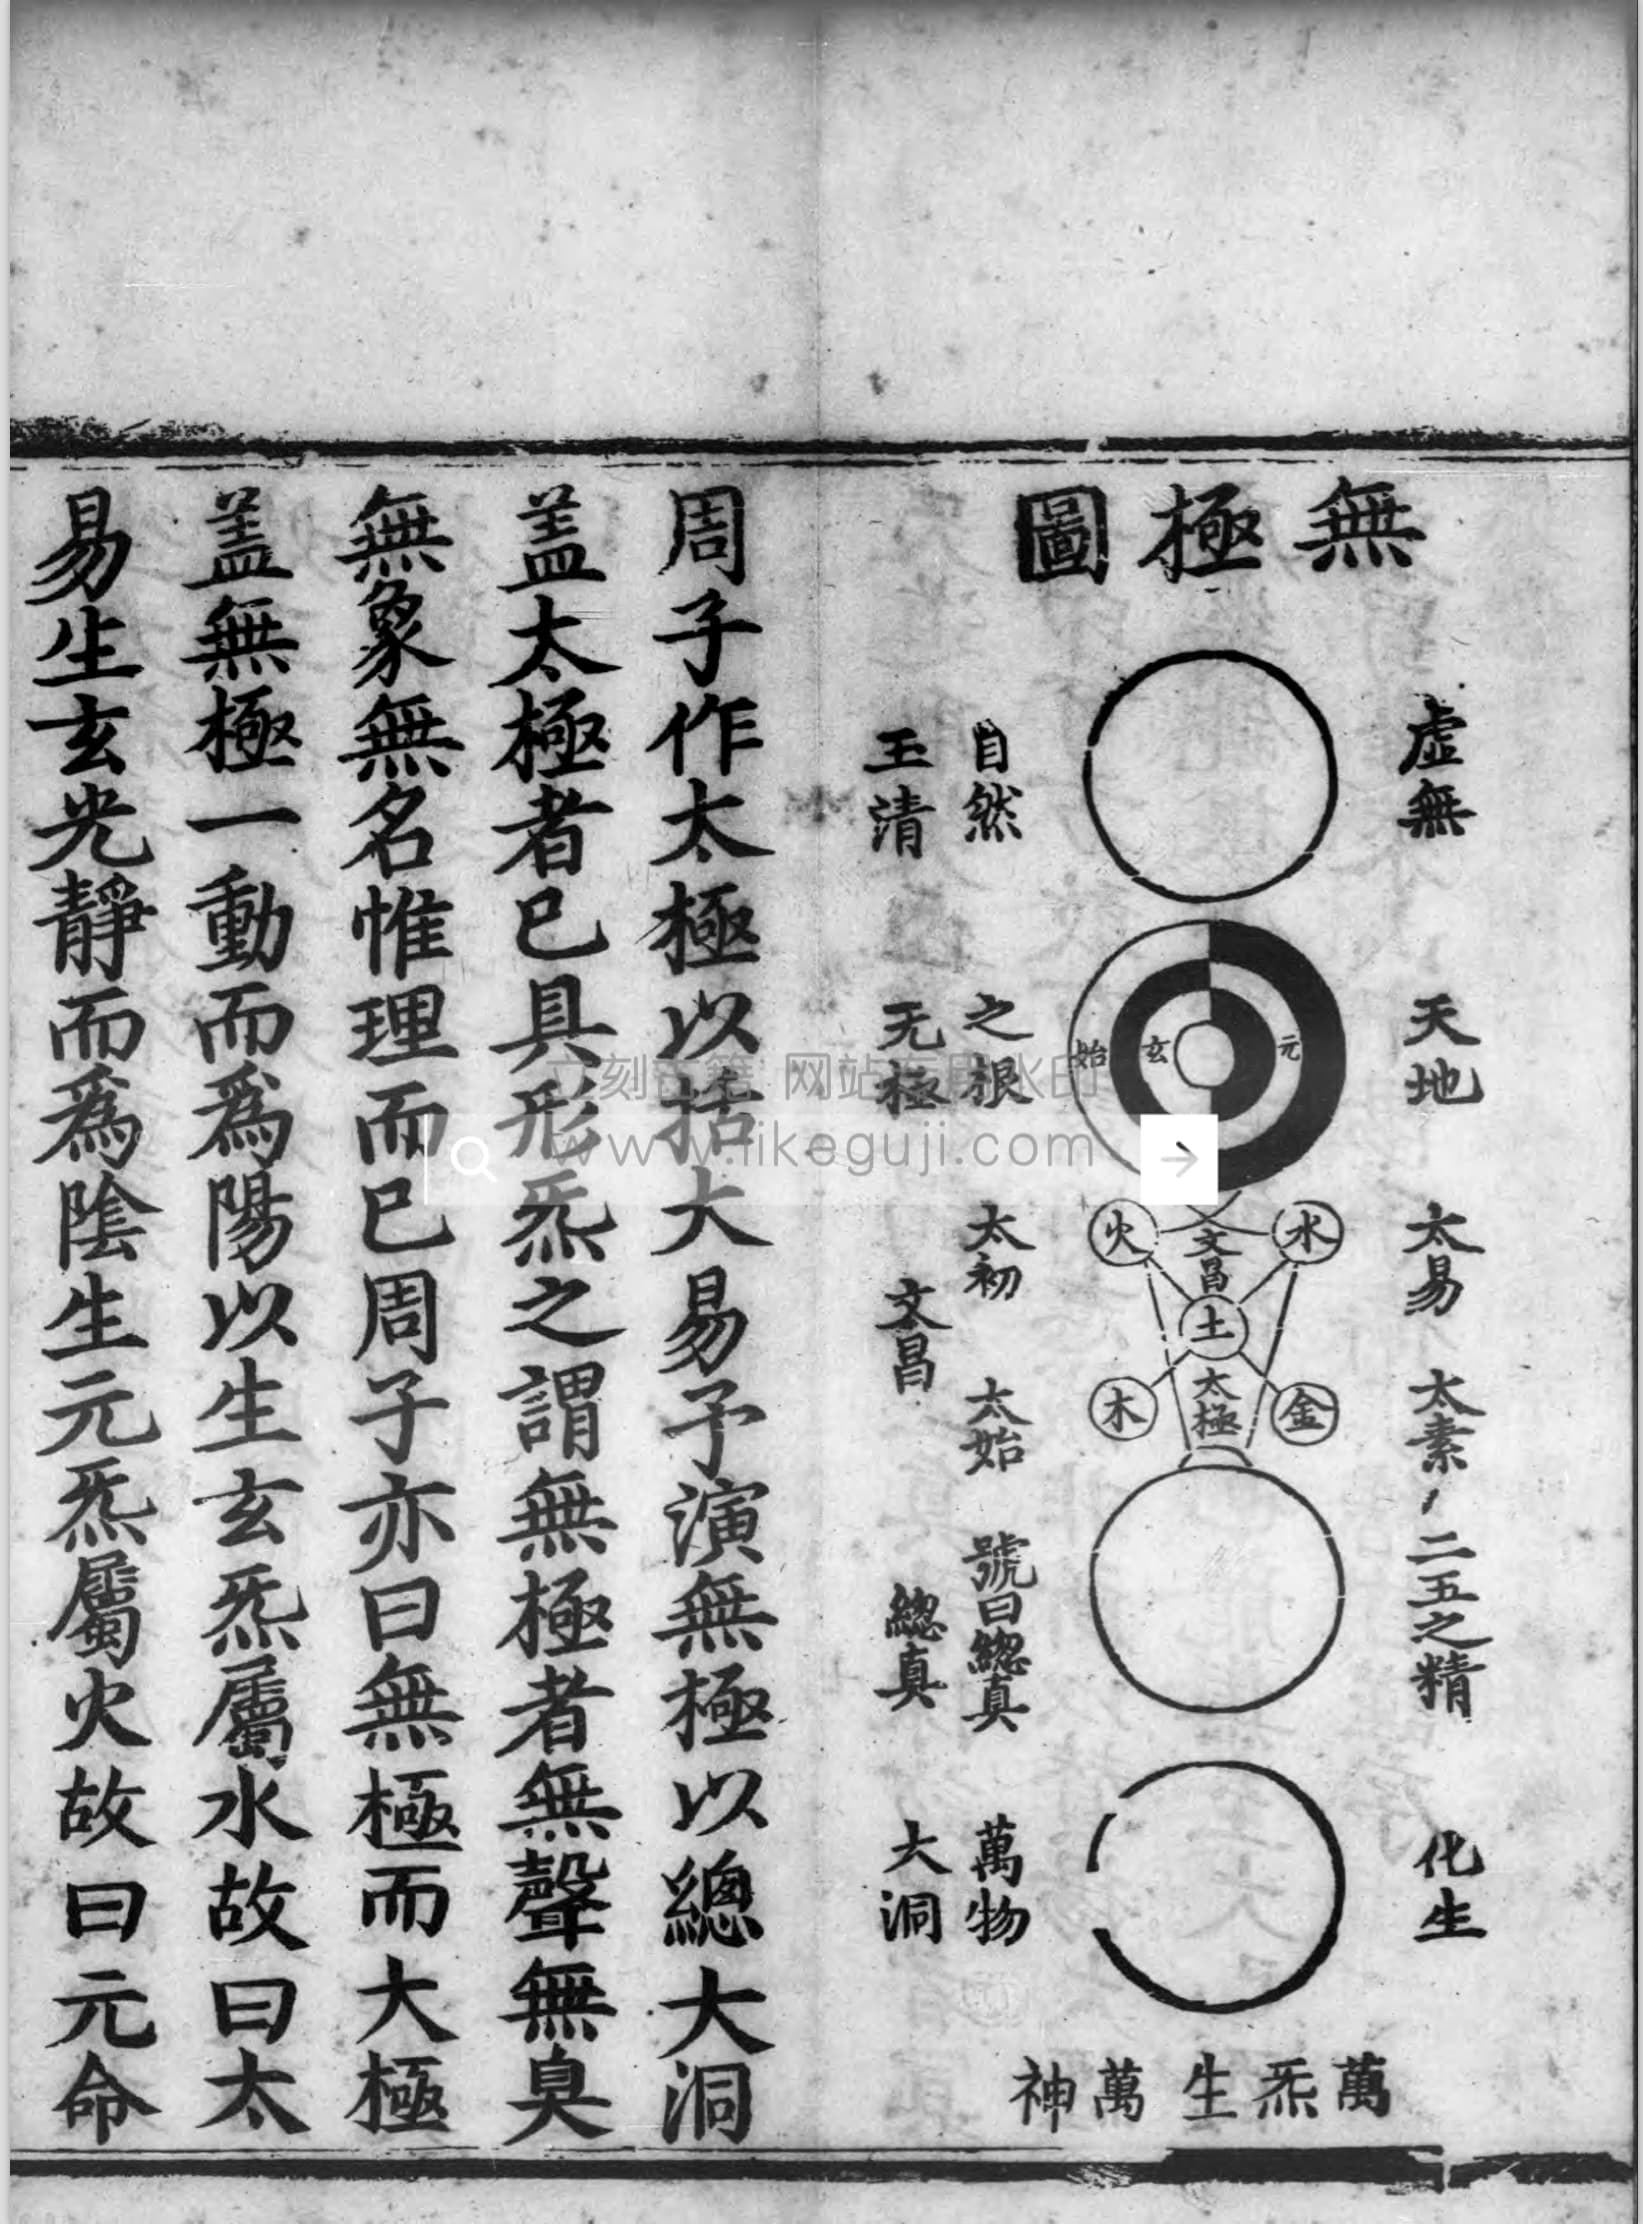 無極圖
虛無
天地
太易
太素
二五之精
化生
元
玄
始
水
火
文昌
土
金
木
太極
萬炁生萬神
自然
之根
太初
太始
號曰總真
萬物
玉清
无極
文昌
總真
大洞
周子作太極以括大易予演無極以總大洞
盖太極者已具形炁之謂無極者無聲無臭
無象無名惟理而已周子亦曰無極而大極
盖無極一動而為陽以生玄炁屬水故曰太
易生玄光靜而為陰生元炁屬火故曰元命
立刻古籍 网站专用水印
www.likeguji.com